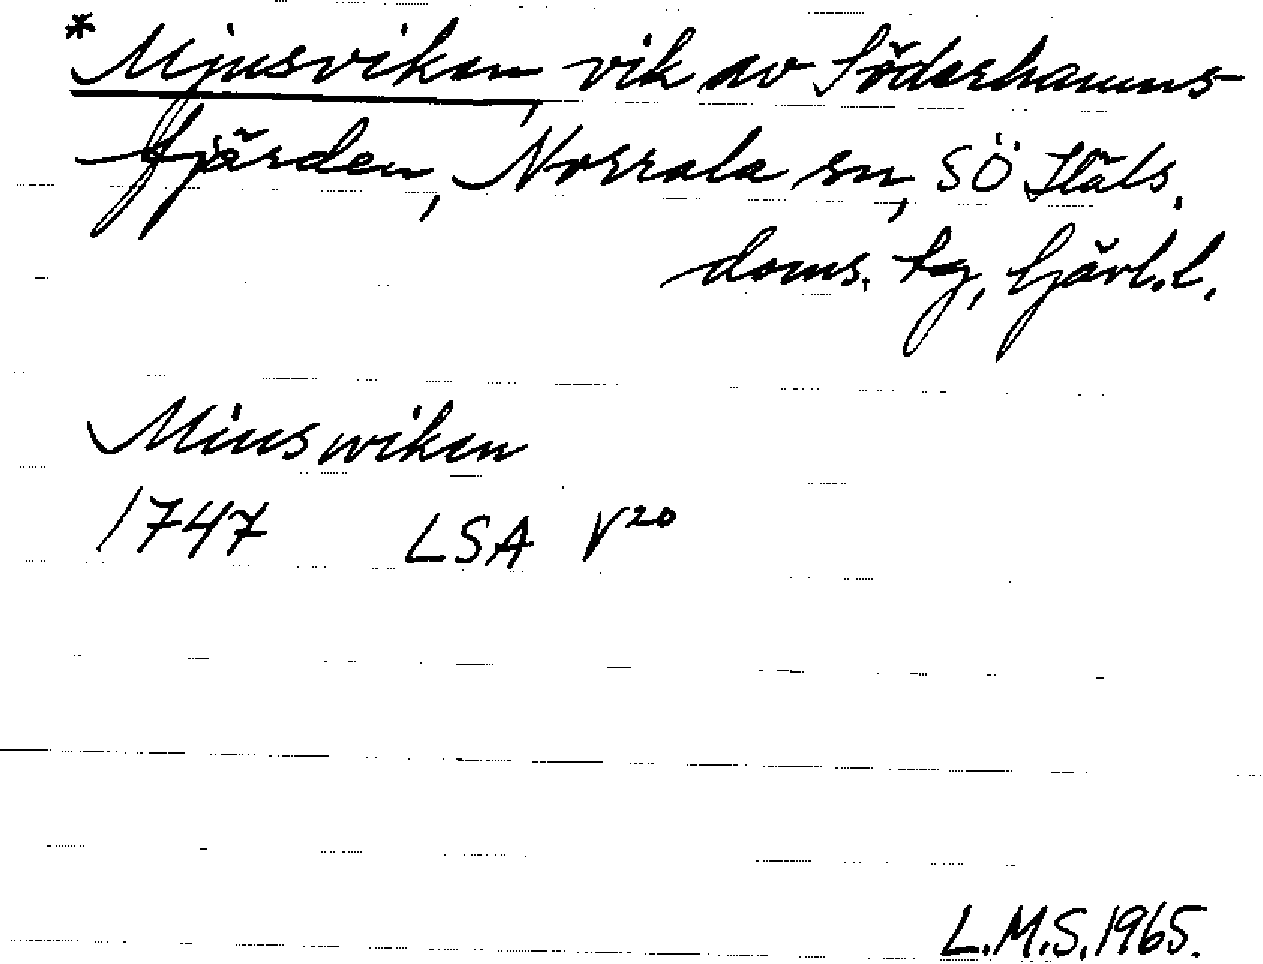 * Mjusviken, vik av Söderhamns-
fjärden, Norrala sn, SÖ Häls.
doms. tg, Gävl.l.
Miuswiken
1747 LSA V20
L.M.S. 1965.